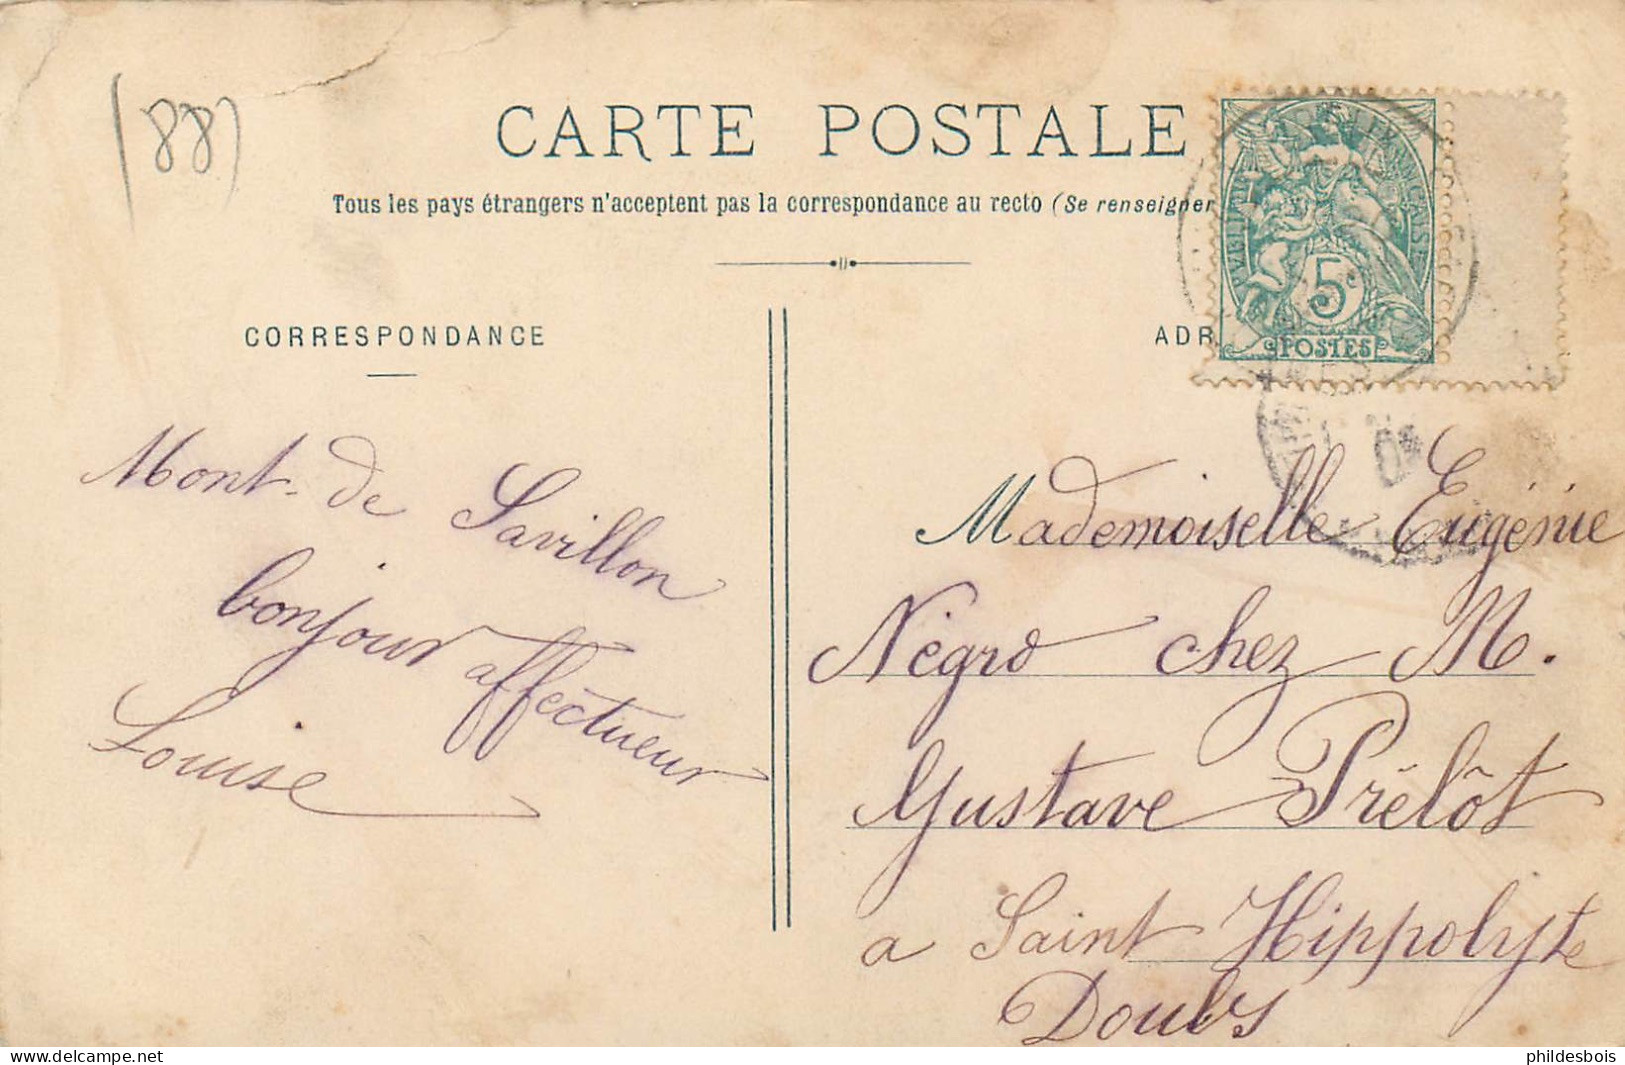 (88)
CARTE POSTALE
Tous les pays étrangers n'acceptent pas la correspondance au recto (Se renseigner
CORRESPONDANCE
ADR
5c
POSTES
Mont. de Savillon
bonjour affectueux
Louise
Mademoiselle Eugénie
Négro chez M.
Gustave Prélôt
a Saint Hippolyte
Doubs
phildesbois